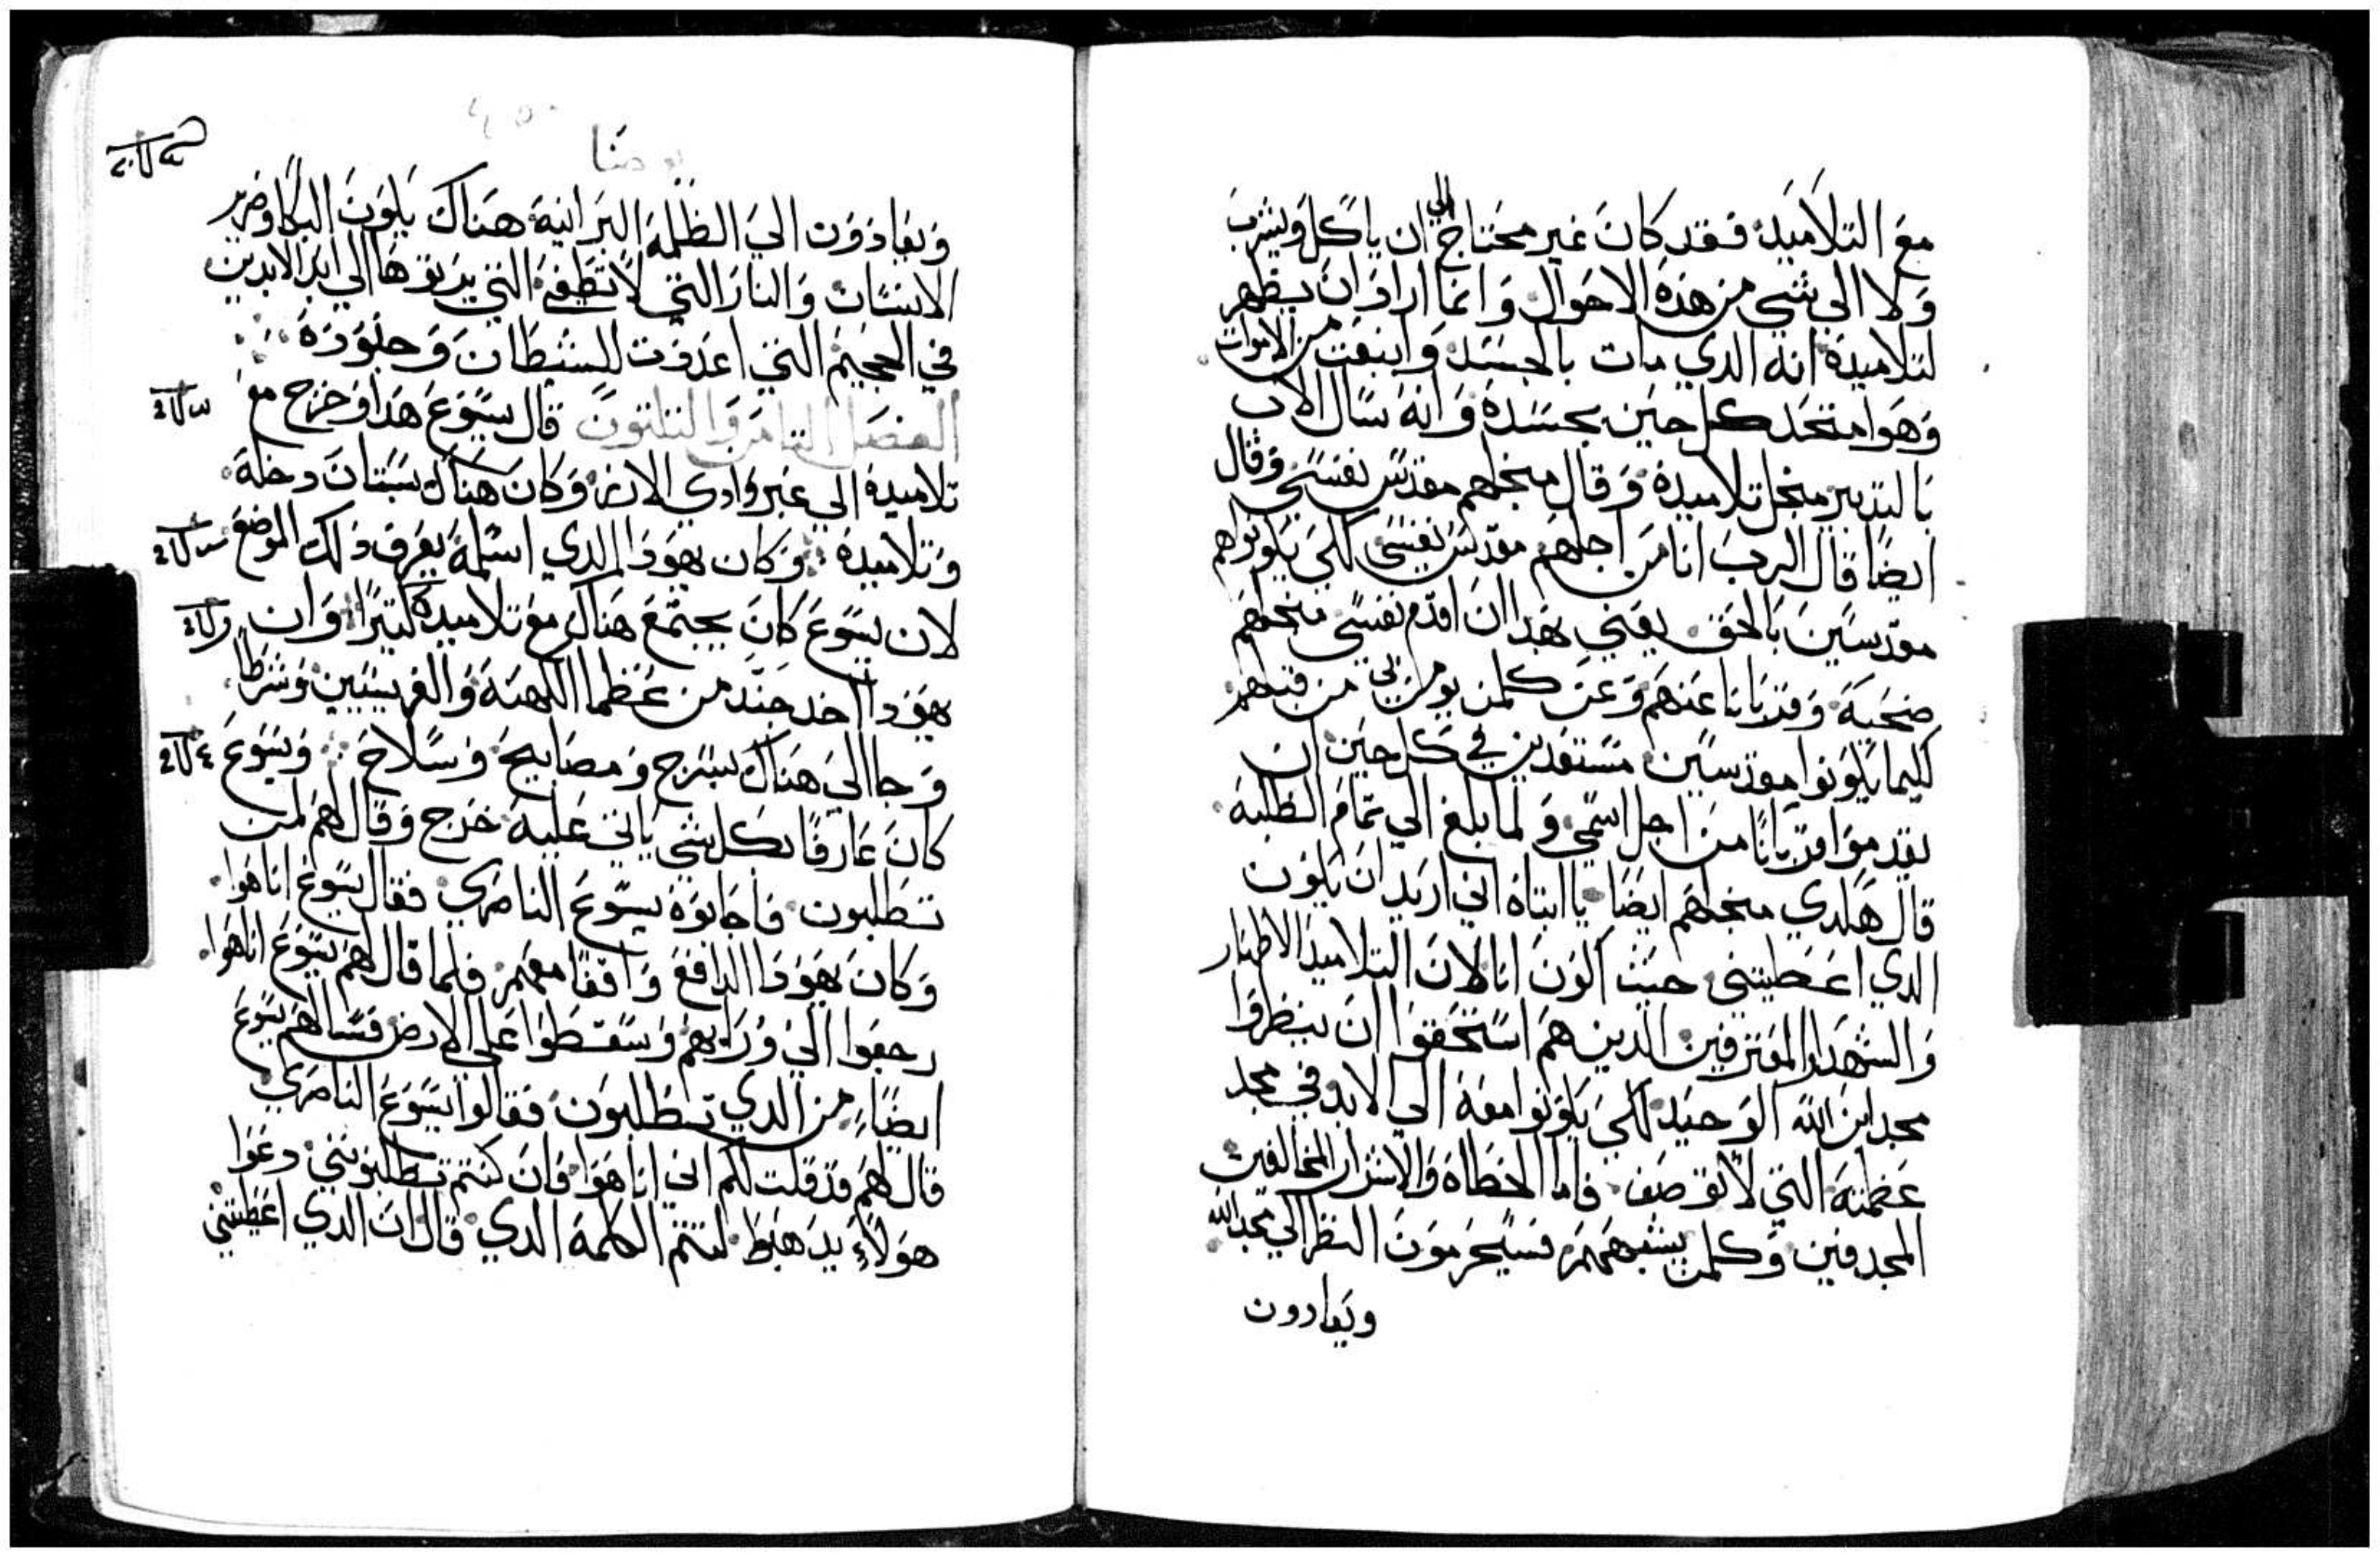 مع التلاميد فقد كان غير محتاج الى ان ياكل ويشرب
ولا الي شي من هذه الاحوال وانما اراد ان يظهر
لتلاميده انه الدي مات بالجسد وانبعت من الاموات
وهوا متحد كل حين بجسده وانه سال الاب
بالتدبير منجل تلاميده وقال منجلهم مقدس نفسي وقال
ايضا قال الرب انا من اجلهم مقدس نفسي لكي يكونواهم
مقدسين بالحق يعني بهدا ان اقدم نفسي منجلهم
ضحية وقربانا عنهم وعن كلمن يومن بي من قبلهم
لكيما يكونوا مقدسين مستعدين في كل حين ان
يقدموا قربانا من اجل اسمي ولما بلغ الي تمام الطلبه
قال هكدي منجلهم ايضا يا ابتاه اني اريد ان يكون
الدي اعطيتني حيث اكون انا لان التلاميد الاطهار
والشهدا المعترفين الدين هم استحقوا ان ينظروا
مجد ابن الله الوحيد لكي يكونوا معه الي الابد في مجد
عظمته التي لا توصف فاما الخطاه والاشرار المخالفين
المجدفين وكلمن يشبههم فسيحرمون النظر الي مجد الله
ويقادون
يوحنا
ويقادون الي الظلمه البرانيه هناك يكون البكا وضرير
الاسنان والنار التي لا تطفي التي يرتوها الي ابد الابدين
في الجحيم التي اعدت للشيطان وجنوده
الفصل التامن والتلتون قال يسوع هدا وخرج مع
تلاميده الي عبر وادي الارز وكان هناك بستان دخله
وتلاميده وكان يهودا الدي اسلمه يعرف دلك الموضع
لان يسوع كان يجتمع هناك مع تلاميده كتيرا وان
يهودا اخد جند من عظما الكهنه والفريسيين وشرطا
وجا الي هناك بسرج ومصابيح وسلاح ويسوع
كان عارفا بكل شي ياتي عليه خرج وقال لهم لمن
تطلبون فاجابوه يسوع الناصري فقال يسوع انا هوا
وكان يهودا الدافع واقفا معهم فلما قال لهم يسوع انا هوا
رجعوا الي ورايهم وسقطوا علي الارض فسالهم يسوع
ايضا من الدي تطلبون فقالوا يسوع الناصري
قال لهم قد قلت لكم اني انا هوا فان كنتم تطلبونني دعوا
هولاء يدهبو لتتم الكلمه الدي قال ان الدي اعطيتني